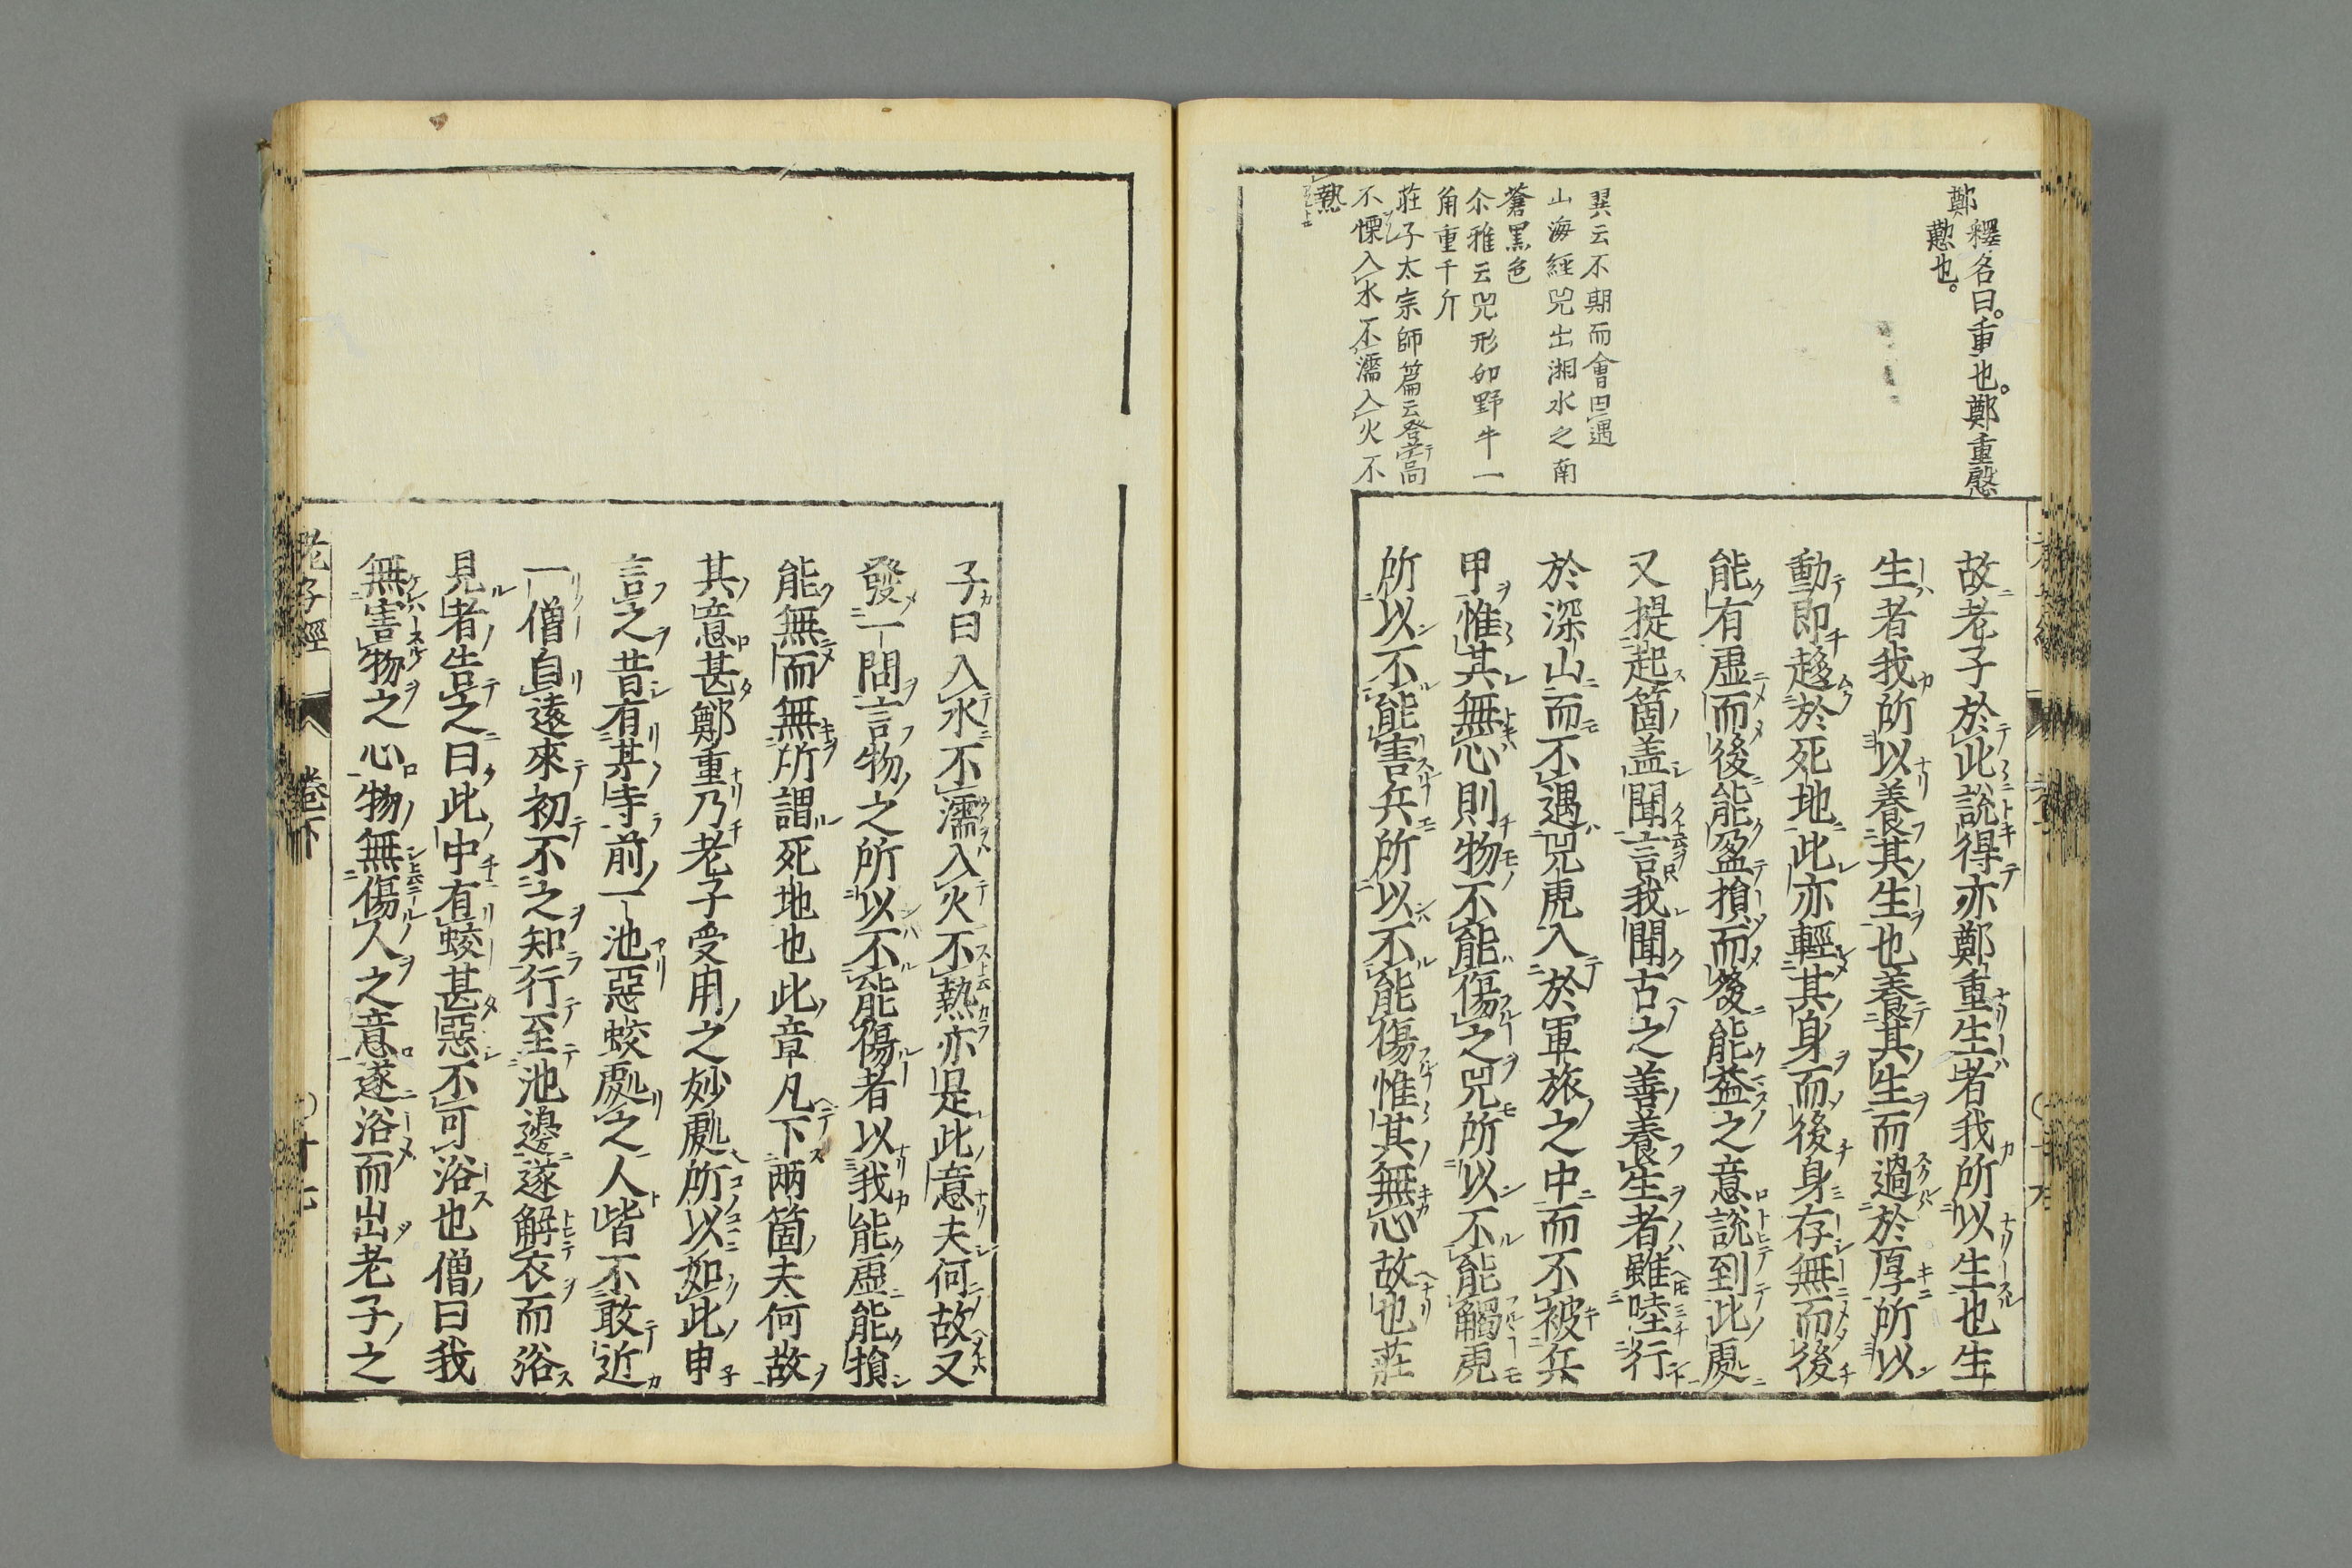 鄭 釋名曰。重也。鄭重慇
懃也。
異云不期而會曰遇
山海經兕出湘水之南
蒼黒色
尒雅云兕形如野牛一
角重千斤
莊子太宗師篇云登高
不慄入水不濡入火不
熱
故老子於此説得亦鄭重生者我所以生也生
生者我所以養其生也養其生而過於厚所以
動即趍於死地此亦輕其身而後身存無而後
能有虚而後能盈損而後能益之意説到此處
又提起箇盖聞言我聞古之善養生者雖陸行
於深山而不遇兕虎入於軍旅之中而不被兵
甲惟其無心則物不能傷之兕所以不能觸虎
所以不能害兵所以不能傷惟其無心故也莊
子曰入水不濡入火不熱亦是此意夫何故又
發一問言物之所以不能傷者以我能虚能損
能無而無所謂死地也此章凡下两箇夫何故
其意甚鄭重乃老子受用之妙處所以如此申
言之昔有某寺前一池惡蛟處之人皆不敢近
一僧自遠來初不之知行至池邊遂解衣而浴
見者告之曰此中有蛟甚惡不可浴也僧曰我
無害物之心物無傷人之意遂浴而出老子之
老子經 卷下 〇十七